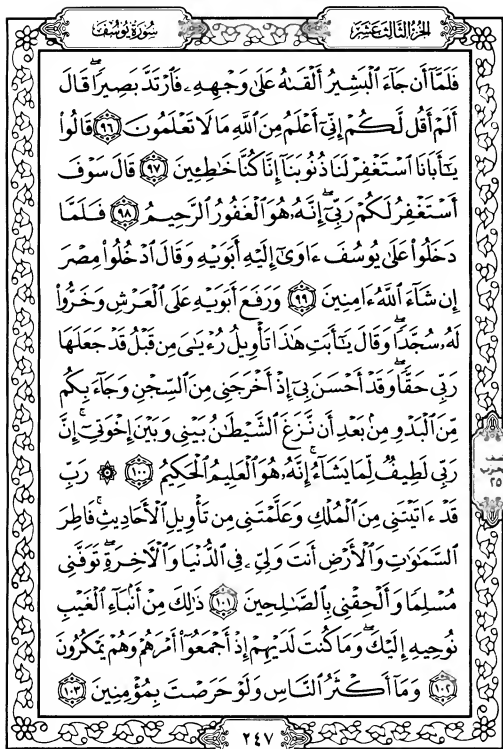 سُورَةُ يُوسُفَ
الجُزْءُ الثَّالِثَ عَشَرَ
فَلَمَّآ أَن جَآءَ ٱلْبَشِيرُ أَلْقَىٰهُ عَلَىٰ وَجْهِهِۦ فَٱرْتَدَّ بَصِيرًاۖ قَالَ
أَلَمْ أَقُل لَّكُمْ إِنِّىٓ أَعْلَمُ مِنَ ٱللَّهِ مَا لَا تَعْلَمُونَ ٩٦ قَالُوا۟
يَـٰٓأَبَانَا ٱسْتَغْفِرْ لَنَا ذُنُوبَنَآ إِنَّا كُنَّا خَـٰطِـِٔينَ ٩٧ قَالَ سَوْفَ
أَسْتَغْفِرُ لَكُمْ رَبِّىٓۖ إِنَّهُۥ هُوَ ٱلْغَفُورُ ٱلرَّحِيمُ ٩٨ فَلَمَّا
دَخَلُوا۟ عَلَىٰ يُوسُفَ ءَاوَىٰٓ إِلَيْهِ أَبَوَيْهِ وَقَالَ ٱدْخُلُوا۟ مِصْرَ
إِن شَآءَ ٱللَّهُ ءَامِنِينَ ٩٩ وَرَفَعَ أَبَوَيْهِ عَلَى ٱلْعَرْشِ وَخَرُّوا۟
لَهُۥ سُجَّدًاۖ وَقَالَ يَـٰٓأَبَتِ هَـٰذَا تَأْوِيلُ رُءْيَـٰىَ مِن قَبْلُ قَدْ جَعَلَهَا
رَبِّى حَقًّاۖ وَقَدْ أَحْسَنَ بِىٓ إِذْ أَخْرَجَنِى مِنَ ٱلسِّجْنِ وَجَآءَ بِكُم
مِّنَ ٱلْبَدْوِ مِنۢ بَعْدِ أَن نَّزَغَ ٱلشَّيْطَـٰنُ بَيْنِى وَبَيْنَ إِخْوَتِىٓۚ إِنَّ
رَبِّى لَطِيفٌ لِّمَا يَشَآءُۚ إِنَّهُۥ هُوَ ٱلْعَلِيمُ ٱلْحَكِيمُ ١٠٠ ۞ رَبِّ
قَدْ ءَاتَيْتَنِى مِنَ ٱلْمُلْكِ وَعَلَّمْتَنِى مِن تَأْوِيلِ ٱلْأَحَادِيثِۚ فَاطِرَ
ٱلسَّمَـٰوَٰتِ وَٱلْأَرْضِ أَنتَ وَلِىِّۦ فِى ٱلدُّنْيَا وَٱلْـَٔاخِرَةِۖ تَوَفَّنِى
مُسْلِمًا وَأَلْحِقْنِى بِٱلصَّـٰلِحِينَ ١٠١ ذَٰلِكَ مِنْ أَنۢبَآءِ ٱلْغَيْبِ
نُوحِيهِ إِلَيْكَۖ وَمَا كُنتَ لَدَيْهِمْ إِذْ أَجْمَعُوٓا۟ أَمْرَهُمْ وَهُمْ يَمْكُرُونَ
١٠٢ وَمَآ أَكْثَرُ ٱلنَّاسِ وَلَوْ حَرَصْتَ بِمُؤْمِنِينَ ١٠٣
الحزب
٢٥
٢٤٧